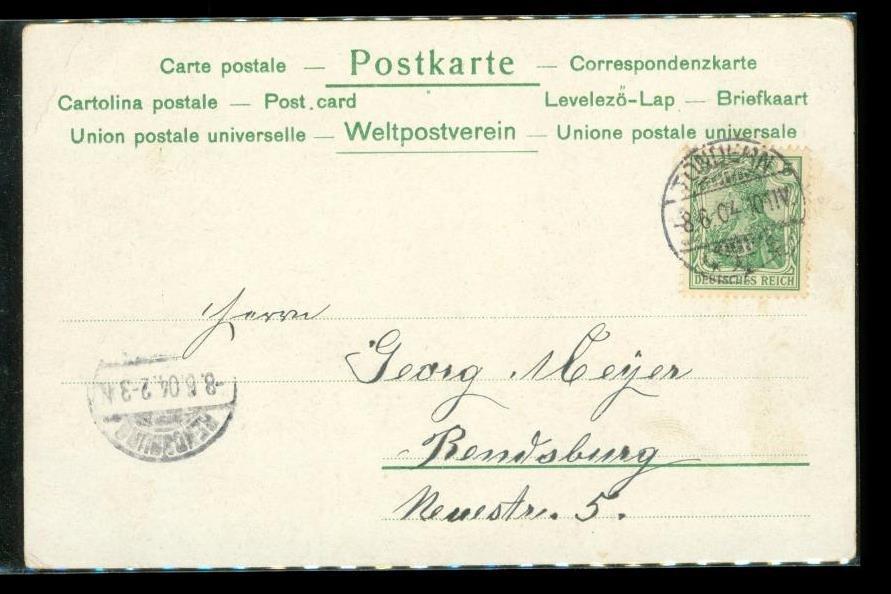 Carte postale — Postkarte — Correspondenzkarte
Cartolina postale — Post card Levelező-Lap — Briefkaart
Union postale universelle — Weltpostverein — Unione postale universale
TONDERN
8.6.04
DEUTSCHES REICH
Herrn
Georg Meyer
-8.6.04. 2-3 N.
RENDSBURG
Rendsburg
Neuestr. 5.